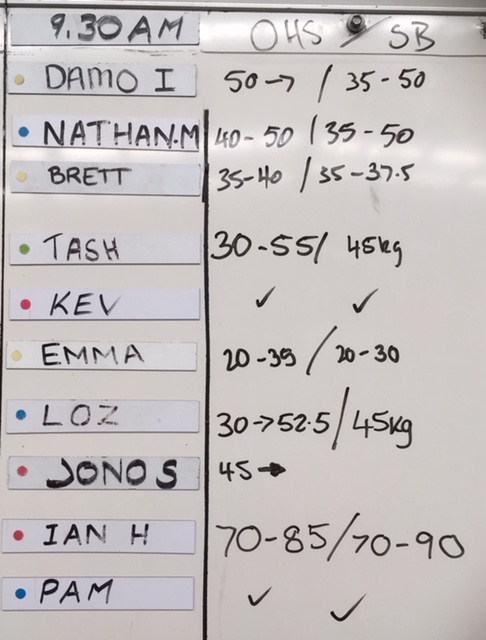 9.30AM OHS / SB
DAMO I 50→ / 35-50
NATHAN.M 40-50 / 35-50
BRETT 35-40 / 35-37.5
TASH 30-55/ 45kg
KEV ✓ ✓
EMMA 20-35 / 20-30
LOZ 30→52.5/45kg
JONO S 45→
IAN H 70-85/70-90
PAM ✓ ✓